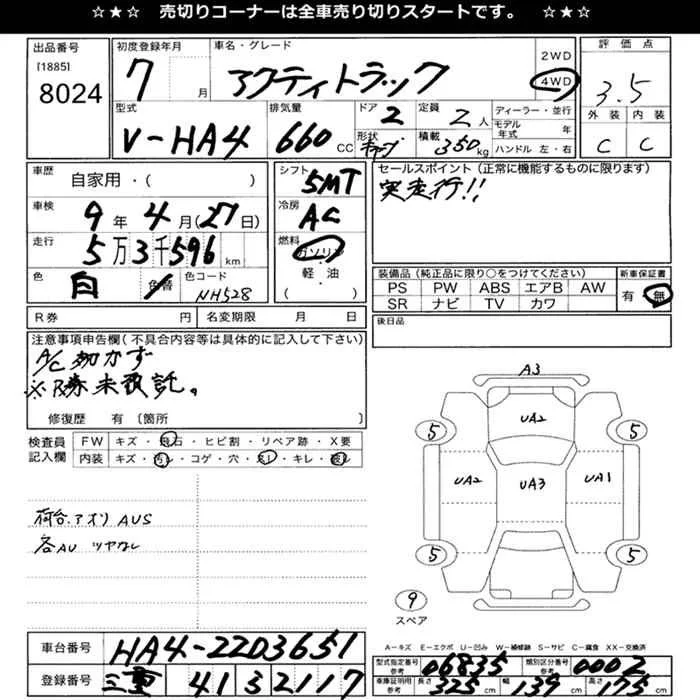 ☆★☆ 売切りコーナーは全車売り切りスタートです。 ☆★☆
出品番号
[1885]
8024
初度登録年月
7 月
車名・グレード
アクティトラック
2WD
4WD
評価点
3.5
外装 内装
C C
型式
V-HA4
排気量
660 CC
ドア 2
形状 キャブ
定員 2 人
積載 350 kg
ディーラー・並行
モデル年式 年
ハンドル 左・右
車歴
自家用・( )
車検
9 年 4 月 (27 日)
走行
5 万 3 千 596 km
色
白
色替
色コード
NH528
シフト
5MT
冷房
AC
燃料
ガソリン
軽・油
( )
セールスポイント(正常に機能するものに限ります)
実走行!!
装備品(純正品に限り○をつけてください)
PS PW ABS エアB AW
SR ナビ TV カワ
新車保証書
有・無
R券 円 名変期限 月 日
後日品
注意事項申告欄(不具合内容等は具体的に記入して下さい)
A/C効かず
※R券未預託。
修復歴 有 〔箇所
検査員
記入欄
FW キズ・飛石・ヒビ割・リペア跡・X要
内装 キズ・汚レ・コゲ・穴・スレ・キレ・破レ
荷台.アオリ AUS
各AU ツヤなし
A3
UA2
5 5
UA2 UA3 UA1
5 5
9
スペア
A-キズ E-エクボ U-凹み W-補修跡 S-サビ C-腐食 XX-交換済
車台番号
HA4-2203651
登録番号
三重 41 3 2117
型式指定番号
参考
06835
類別区分番号
参考
0002
車庫証明用
参考
長さ 325 cm 幅 139 cm 高さ 175 cm